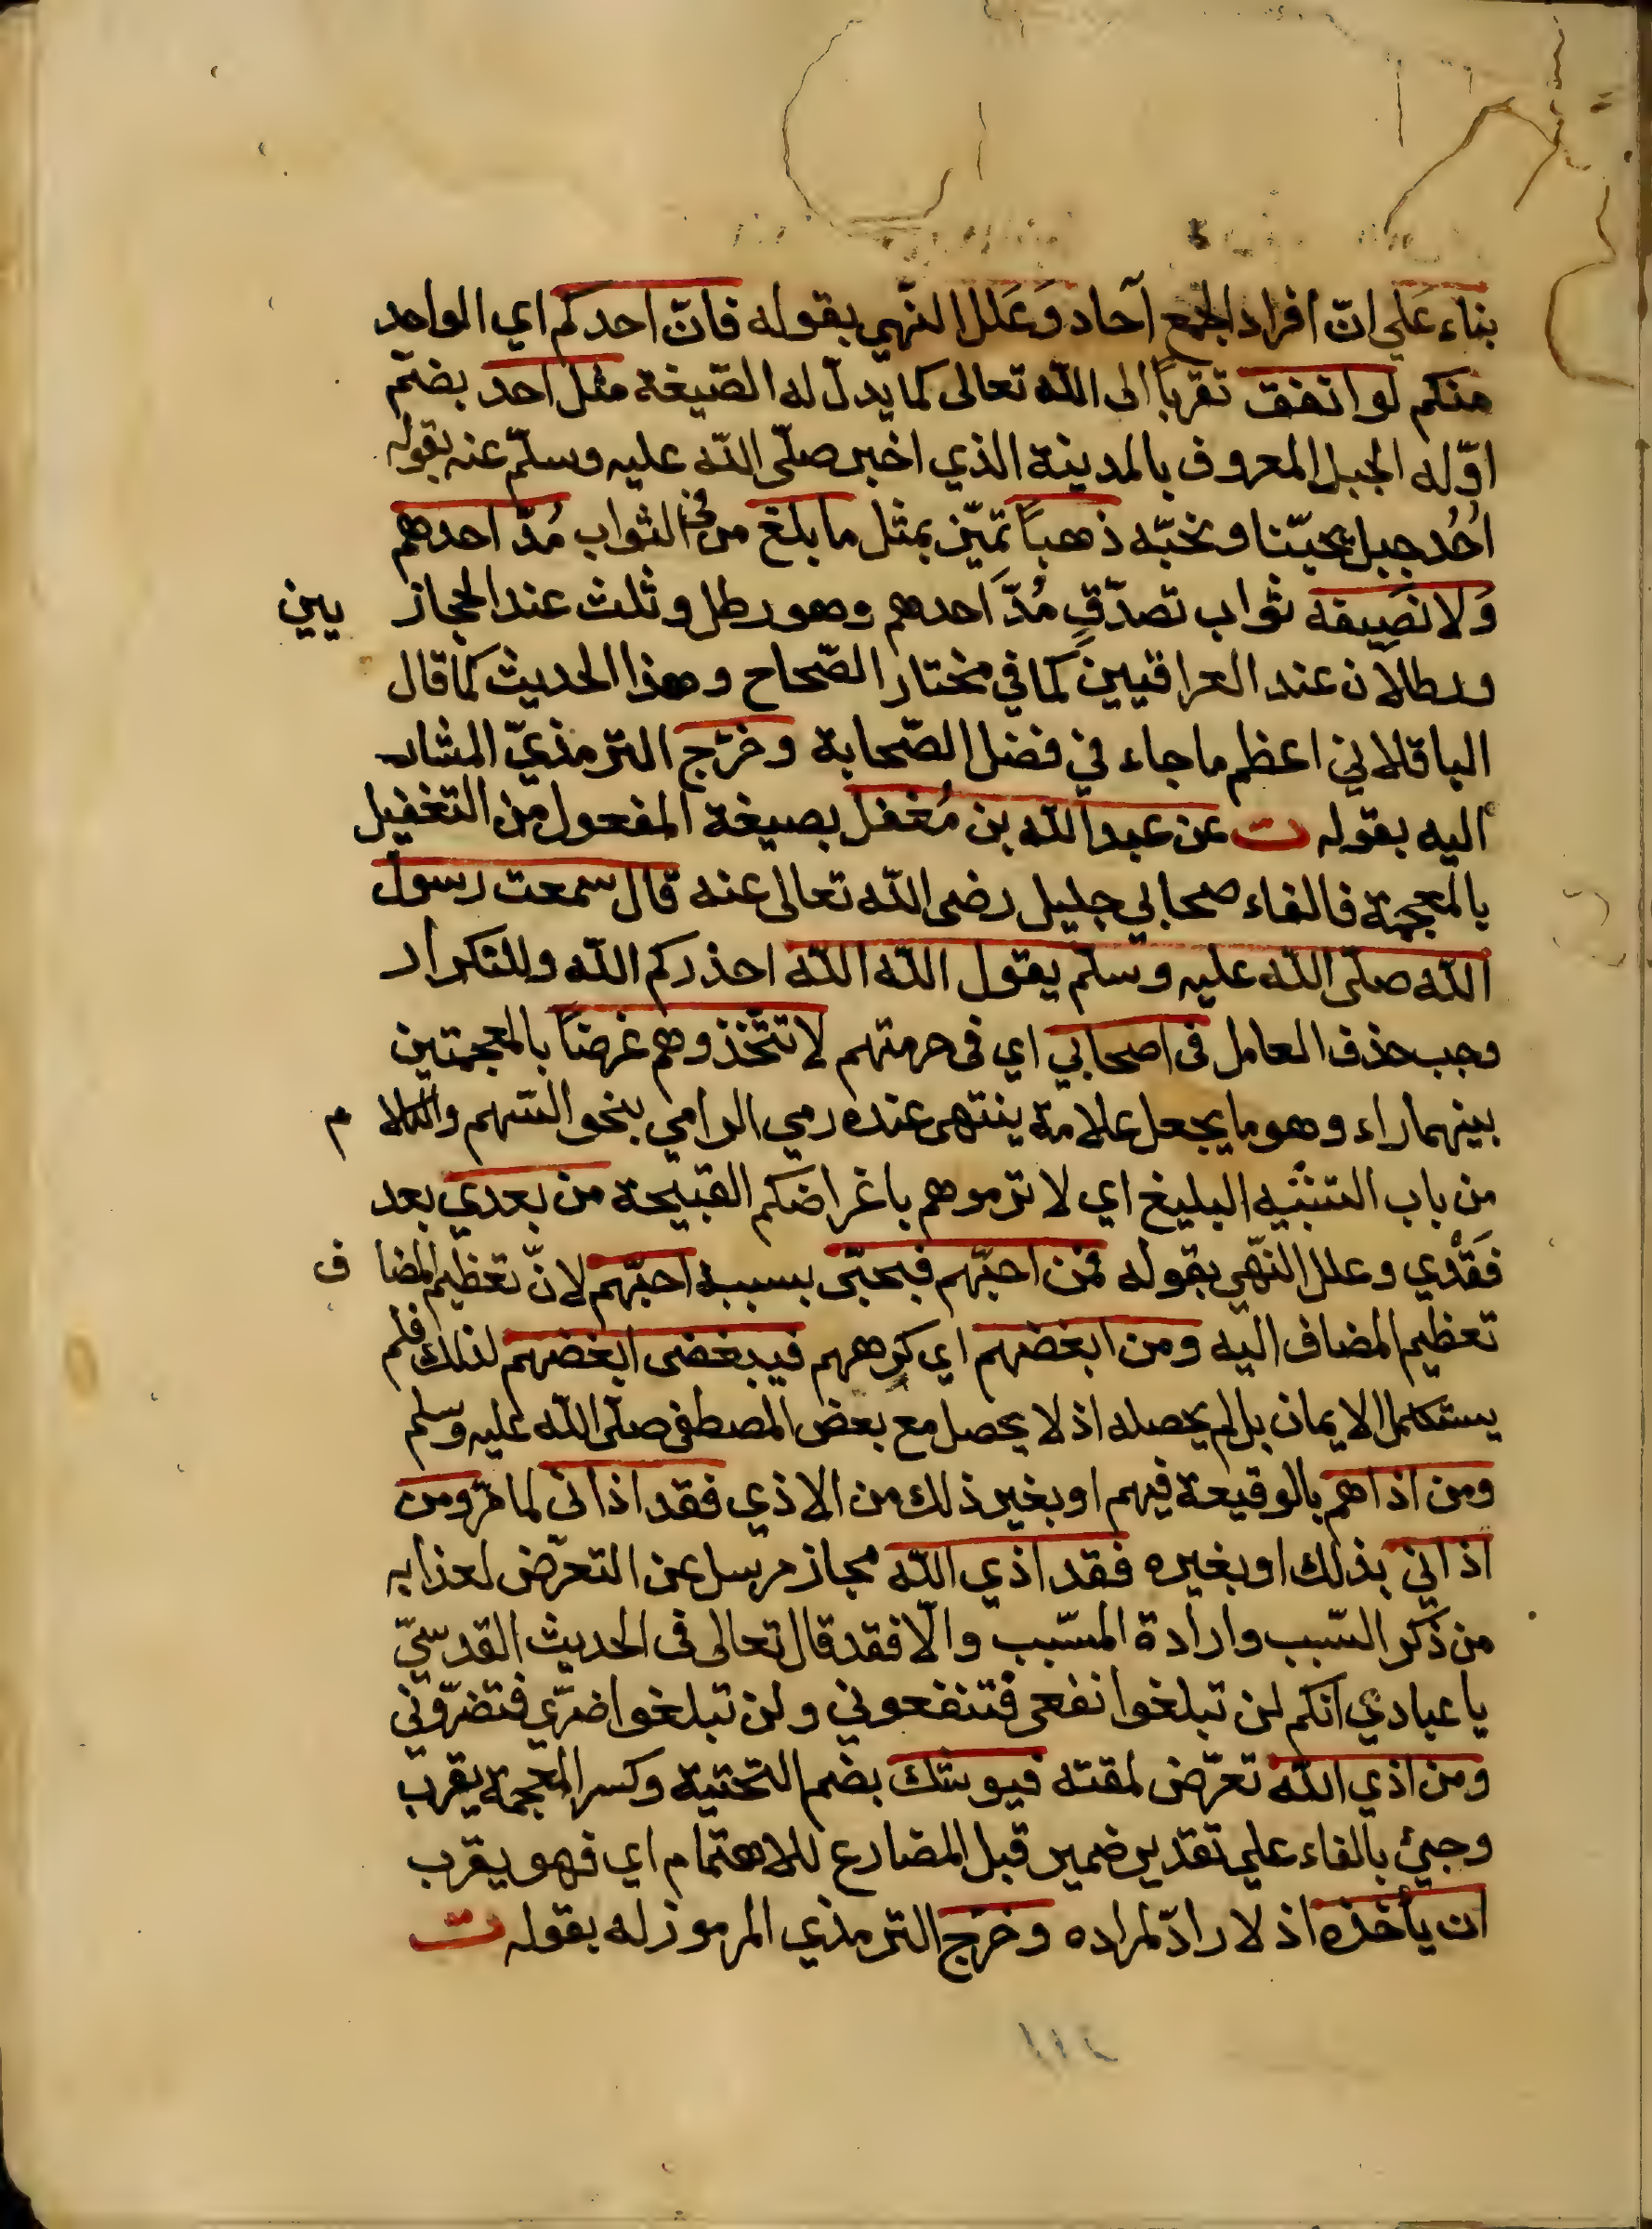 بناء عَلي انّ افراد الجمع آحاد وَعَلل النّهي بقوله فانّ احدكم اي الواحد
منكم لو انفق تقرباً الى الله تعالى كما يدلّ له الصّيغة مثل احد بضمّ
اوّله الجبل المعروف بالمدينة الذي اخبر صلّى الله عليه وسلّم عنه بقوله
اُحُد جبل يحبّنا ونحبّه ذهباً تميّز بمثل ما بلغ من في الثواب مُدّ احدهم
وَلا نَصِيفه ثواب تصدّقِ مُدّ احدهم وهو رطل وثلث عند الحجاز يين
ورطالان عند العراقيين كما في مختار الصّحاح وهذا الحديث كما قال
الباقلاني اعظم ما جاء في فضل الصّحابة وخرّج الترمذيّ المشار
اليه بقوله ت عن عبد الله بن مُغفل بصيغة المفعول من التغفيل
بالمعجمة فالفاء صحابي جليل رضى الله تعالى عنه قال سمعت رسول
الله صلّى الله عليه وسلّم يقول الله الله احذركم الله وللتكرار
وجب حذف العامل فى اصحابي اي فى حرمتهم لا تتّخذوهم غرضاً بالمعجمتين
بينهما راء وهو ما يجعل علامة ينتهى عنده رمي الرامي بنحو السّهم والكلا م
من باب التشبيه البليغ اي لا ترموهم باغراضكم القبيحة من بعدي بعد
فَقْدي وعلل النّهي بقوله فمن احبّهم فبحبّى بسببه احبّهم لانّ تعظيم المضا ف
تعظيم المضاف اليه ومن ابغضهم اي كرههم فيبغضى ابغضهم لذلك فلم
يستكمل الايمان بل لم يحصله اذ لا يحصل مع بعض المصطفى صلّى الله عليه وسلم
ومن اذاهم بالوقيعة فيهم او بغير ذلك من الاذي فقد اذانى لما مرّ ومن
اذاني بذلك او بغيره فقد اذي الله مجاز مرسل عن التعرّض لعذابه
من ذكر السّبب وارادة المسّبب والّا فقد قال تعالى فى الحديث القدسيّ
يا عبادي انكم لن تبلغوا نفعى فتنفعوني ولن تبلغوا ضرّي فتضرّوني
ومن اذي الله تعرّض لمقته فيوشك بضم التحتية وكسر المعجمة يقرب
وجيئ بالفاء علي تقدير ضمير قبل المضارع للاهتمام اي فهو يقرب
ان يأخذه اذ لا رادّ لمراده وخرّج الترمذي المرموز له بقوله ت